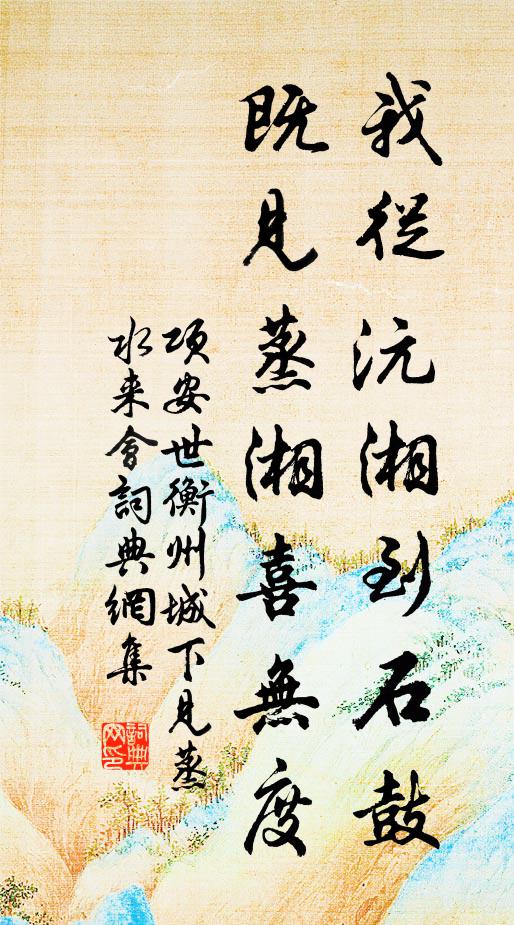 我從沅湘到石鼓
既見蒸湘喜無度
項安世衡州城下見蒸
水来會詞典網集
詞典
网印